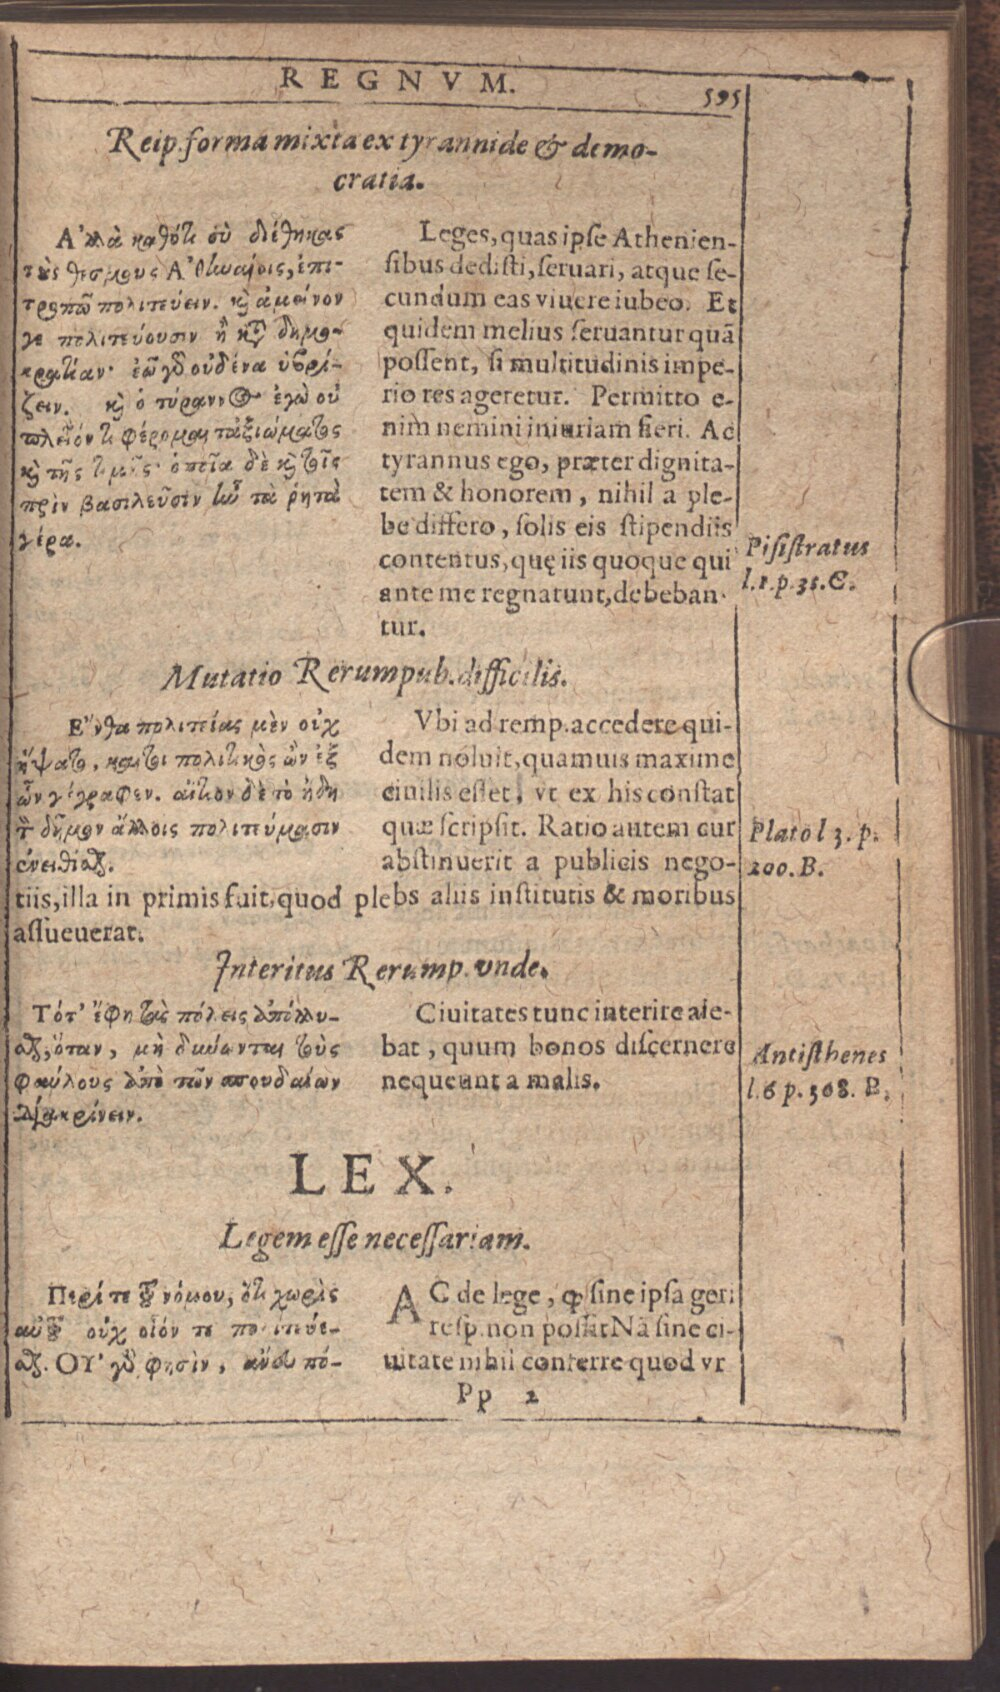 REGNVM.
595
Reip. forma mixta ex tyrannide & demo-
cratia.
Ἀλλὰ καθότι σὺ διέθηκας
τοὺς θεσμοὺς Ἀθηναίοις, ἐπι-
τροπῶ πολιτεύειν. καὶ ἀμείνον
γε πολιτεύουσιν ἢ κατὰ δημο-
κρατίαν· ἐῶ γὰρ οὐδένα ὑβρί-
ζειν. καὶ ὁ τύραννος ἐγὼ οὐ
πλεῖόν τι φέρομαι τἀξιώματος
καὶ τῆς τιμῆς· ὁποῖα δὲ καὶ τοῖς
πρὶν βασιλεῦσιν ἦν τὰ ῥητὰ
γέρα.
Leges, quas ipse Athenien-
sibus dedisti, seruari, atque se-
cundum eas viuere iubeo. Et
quidem melius seruantur quã
possent, si multitudinis impe-
rio res ageretur. Permitto e-
nim nemini iniuriam fieri. Ac
tyrannus ego, præter dignita-
tem & honorem, nihil a ple-
be differo, solis eis stipendiis
contentus, quę iis quoque qui
ante me regnarunt, debeban-
tur.
Pisistratus
l.1.p.35.C.
Mutatio Rerumpub. difficilis.
Ἔνθα πολιτείας μὲν οὐχ
ἥψατο, καίτοι πολιτικὸς ὢν ἐξ
ὧν γέγραφεν. αἴτιον δὲ τὸ ἤδη
τὸν δῆμον ἄλλοις πολιτεύμασιν
ἐνειθίσθαι.
Vbi ad remp. accedere qui-
dem noluit, quamuis maxime
ciuilis esset, vt ex his constat
quæ scripsit. Ratio autem cur
abstinuerit a publicis nego-
tiis, illa in primis fuit, quod plebs aliis institutis & moribus
assueuerat.
Plato l 3. p.
200. B.
Interitus Rerump. vnde.
Τότ' ἔφη τὰς πόλεις ἀπόλλυ-
σθαι, ὅταν, μὴ δύνωνται τοὺς
φαύλους ἀπὸ τῶν σπουδαίων
διακρίνειν.
Ciuitates tunc interire aie-
bat, quum bonos discernere
nequeunt a malis.
Antisthenes
l.6 p. 368. B.
LEX.
Legem esse necessariam.
Περί τε τοῦ νόμου, ὅτι χωρὶς
αὐτοῦ οὐχ οἷόν τε πολιτεύε-
σθαι. Οὐ γάρ φησιν, ἄνευ πό-
AC de lege, quod sine ipsa geri
resp. non possit Nã sine ci-
uitate nihil conferre quod vr
Pp 2